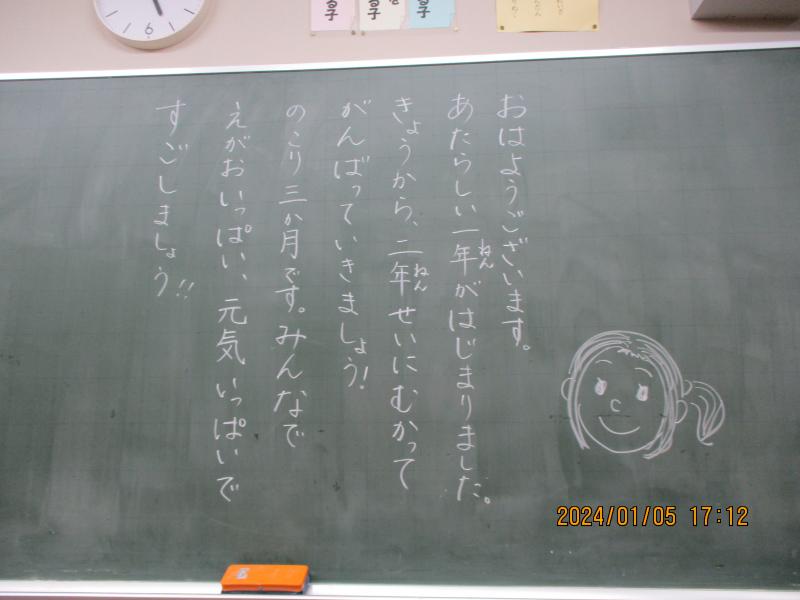 おはようございます。
あたらしい一年がはじまりました。
ねん
きょうから、二年せいにむかって
ねん
がんばっていきましょう!
のこり三か月です。みんなで
えがおいっぱい、元気いっぱいで
すごしましょう!!
2024/01/05 17:12
6
る子
る子
る子